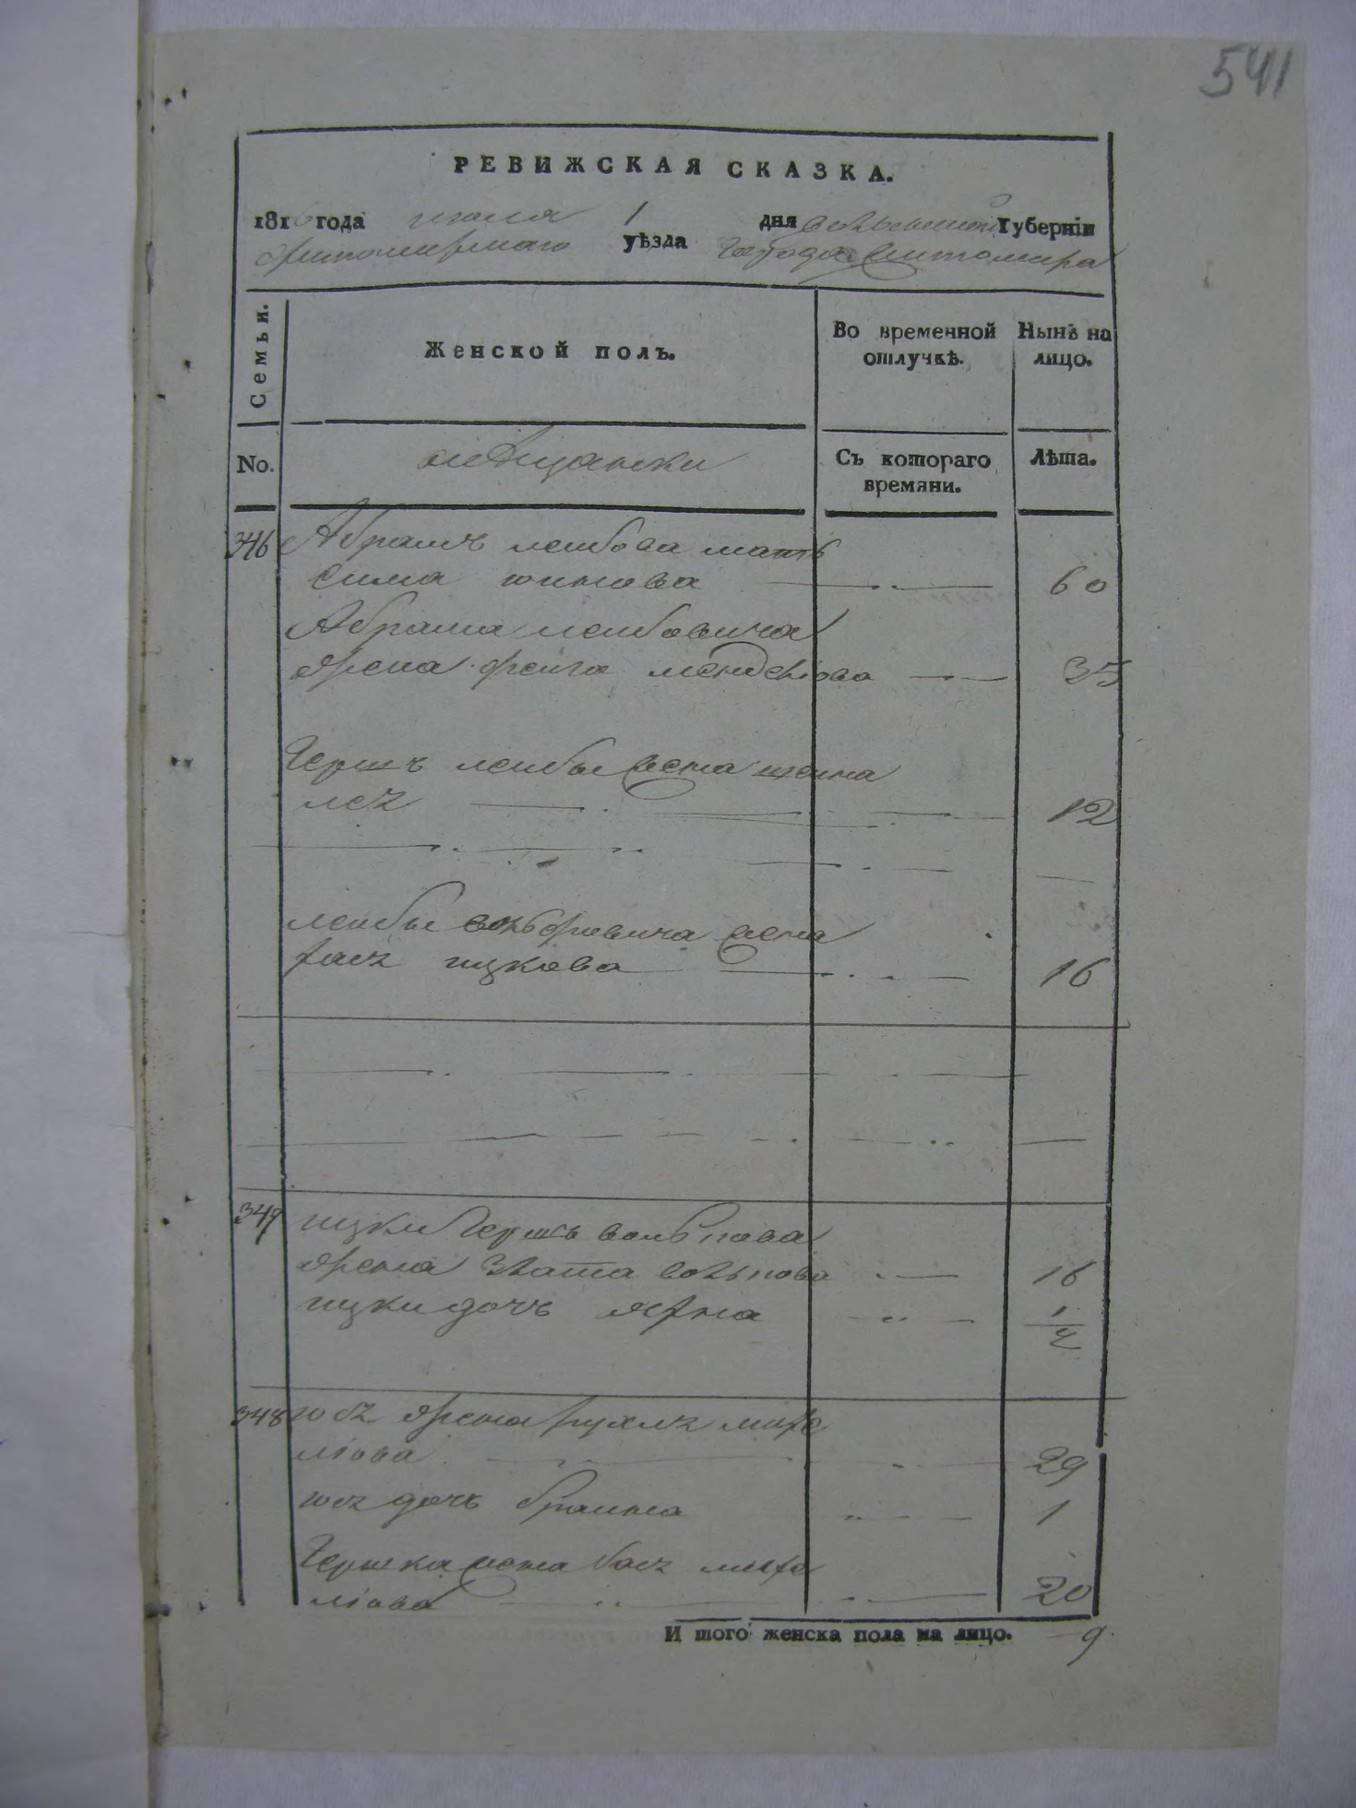 541
РЕВИЖСКАЯ СКАЗКА.
1816 года июля 1 дня волынской Губерніи
житомирскаго уѣзда города житомира
Семьи.
Женской полъ.
Во временной отлучкѣ.
Нынѣ на лицо.
No.
мѣщанки
Съ котораго времяни.
Лѣта.
346 Абрамъ лейбова мать
Сима 60
Абрама лейбовича
жена фейга менделіова 35
Гершъ лейбы жена
лея 12
лейбы вольфовича жена
хая ицкова 16
347 ицки Гершъ
жена Злата 16
ицки дочь 1/2
348 жена рухля
ліова 29
дочь браина 1
Гершка жена бася
ліова 20
И того женска пола на лицо. 9.